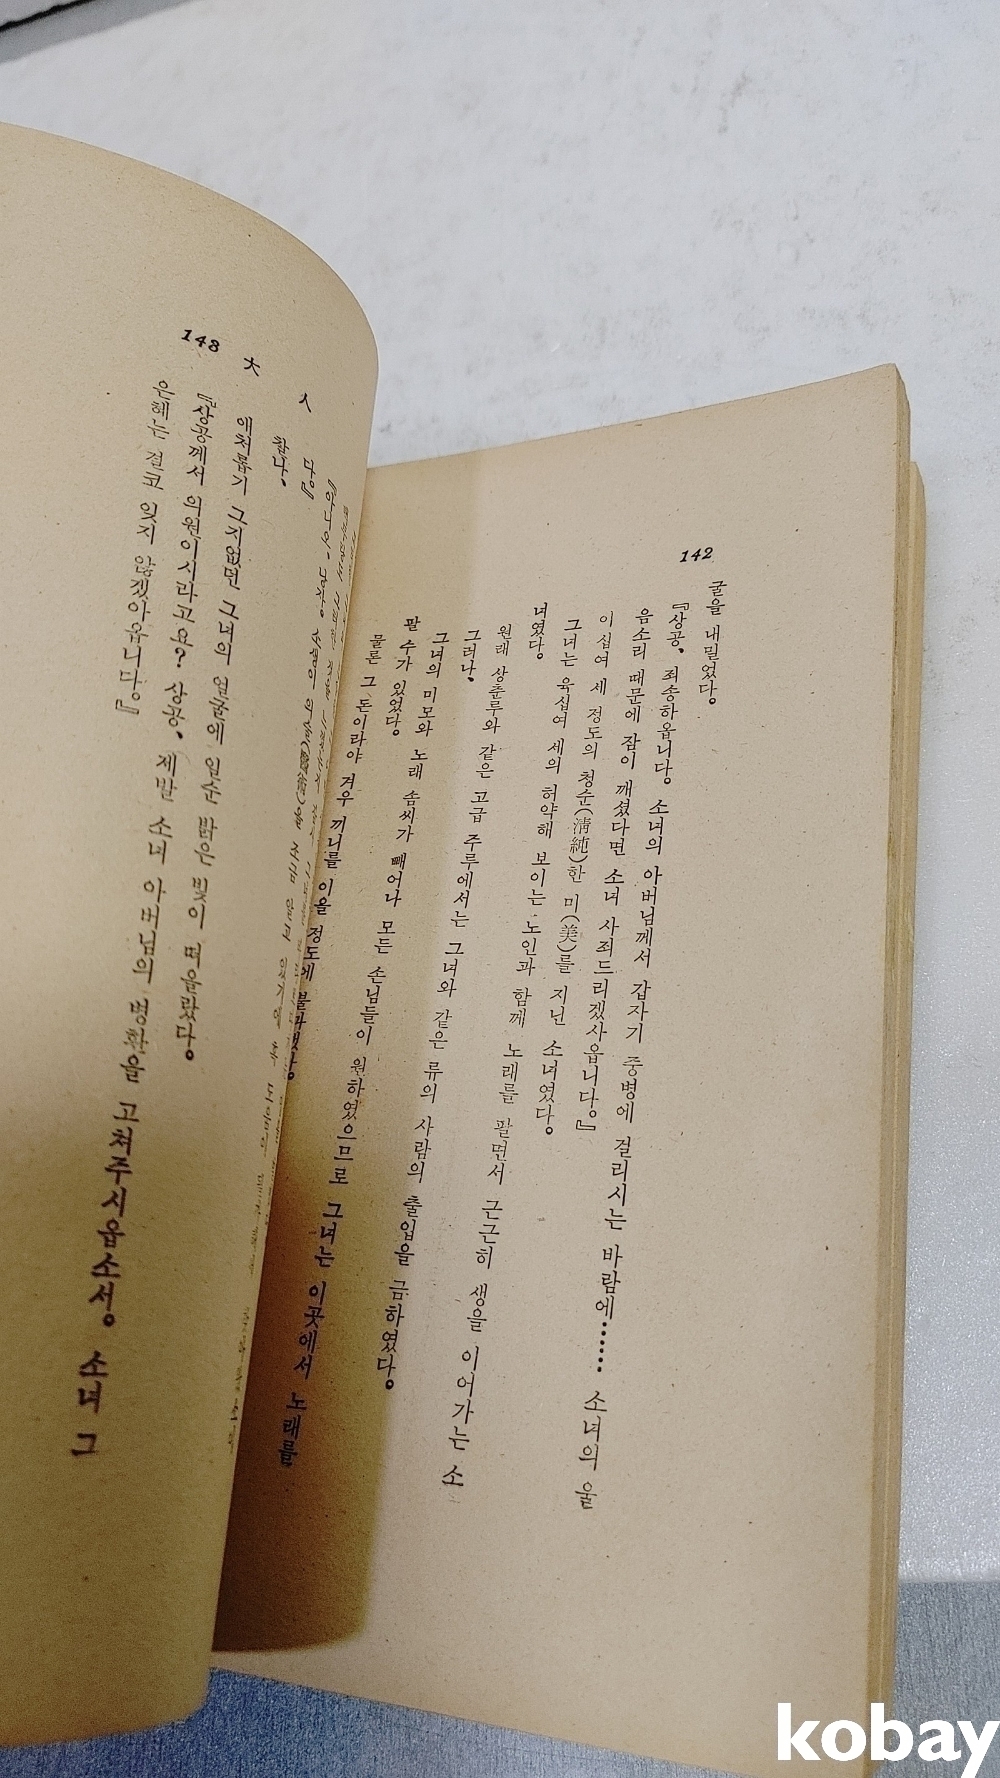 142
굴을 내밀었다。
『상공、 죄송하옵니다。 소녀의 아버님께서 갑자기 중병에 걸리시는 바람에…… 소녀의 울
음소리 때문에 잠이 깨셨다면 소녀 사죄드리겠사옵니다。』
이십여 세 정도의 청순(淸純)한 미(美)를 지닌 소녀였다。
그녀는 육십여 세의 허약해 보이는 노인과 함께 노래를 팔면서 근근히 생을 이어가는 소
녀였다。
원래 상춘루와 같은 고급 주루에서는 그녀와 같은 류의 사람의 출입을 금하였다。
그러나、
그녀의 미모와 노래 솜씨가 빼어나 모든 손님들이 원하였으므로 그녀는 이곳에서 노래를
팔 수가 있었다。
물론 그 돈이라야 겨우 끼니를 이을 정도에 불과했다。
143 大 人
다。』
찰나、
애처롭기 그지없던 그녀의 얼굴에 일순 밝은 빛이 떠올랐다。
『상공께서 의원이시라고요? 상공、 제발 소녀 아버님의 병환을 고쳐주시옵소서。 소녀 그
은혜는 결코 잊지 않겠아옵니다。』
kobay